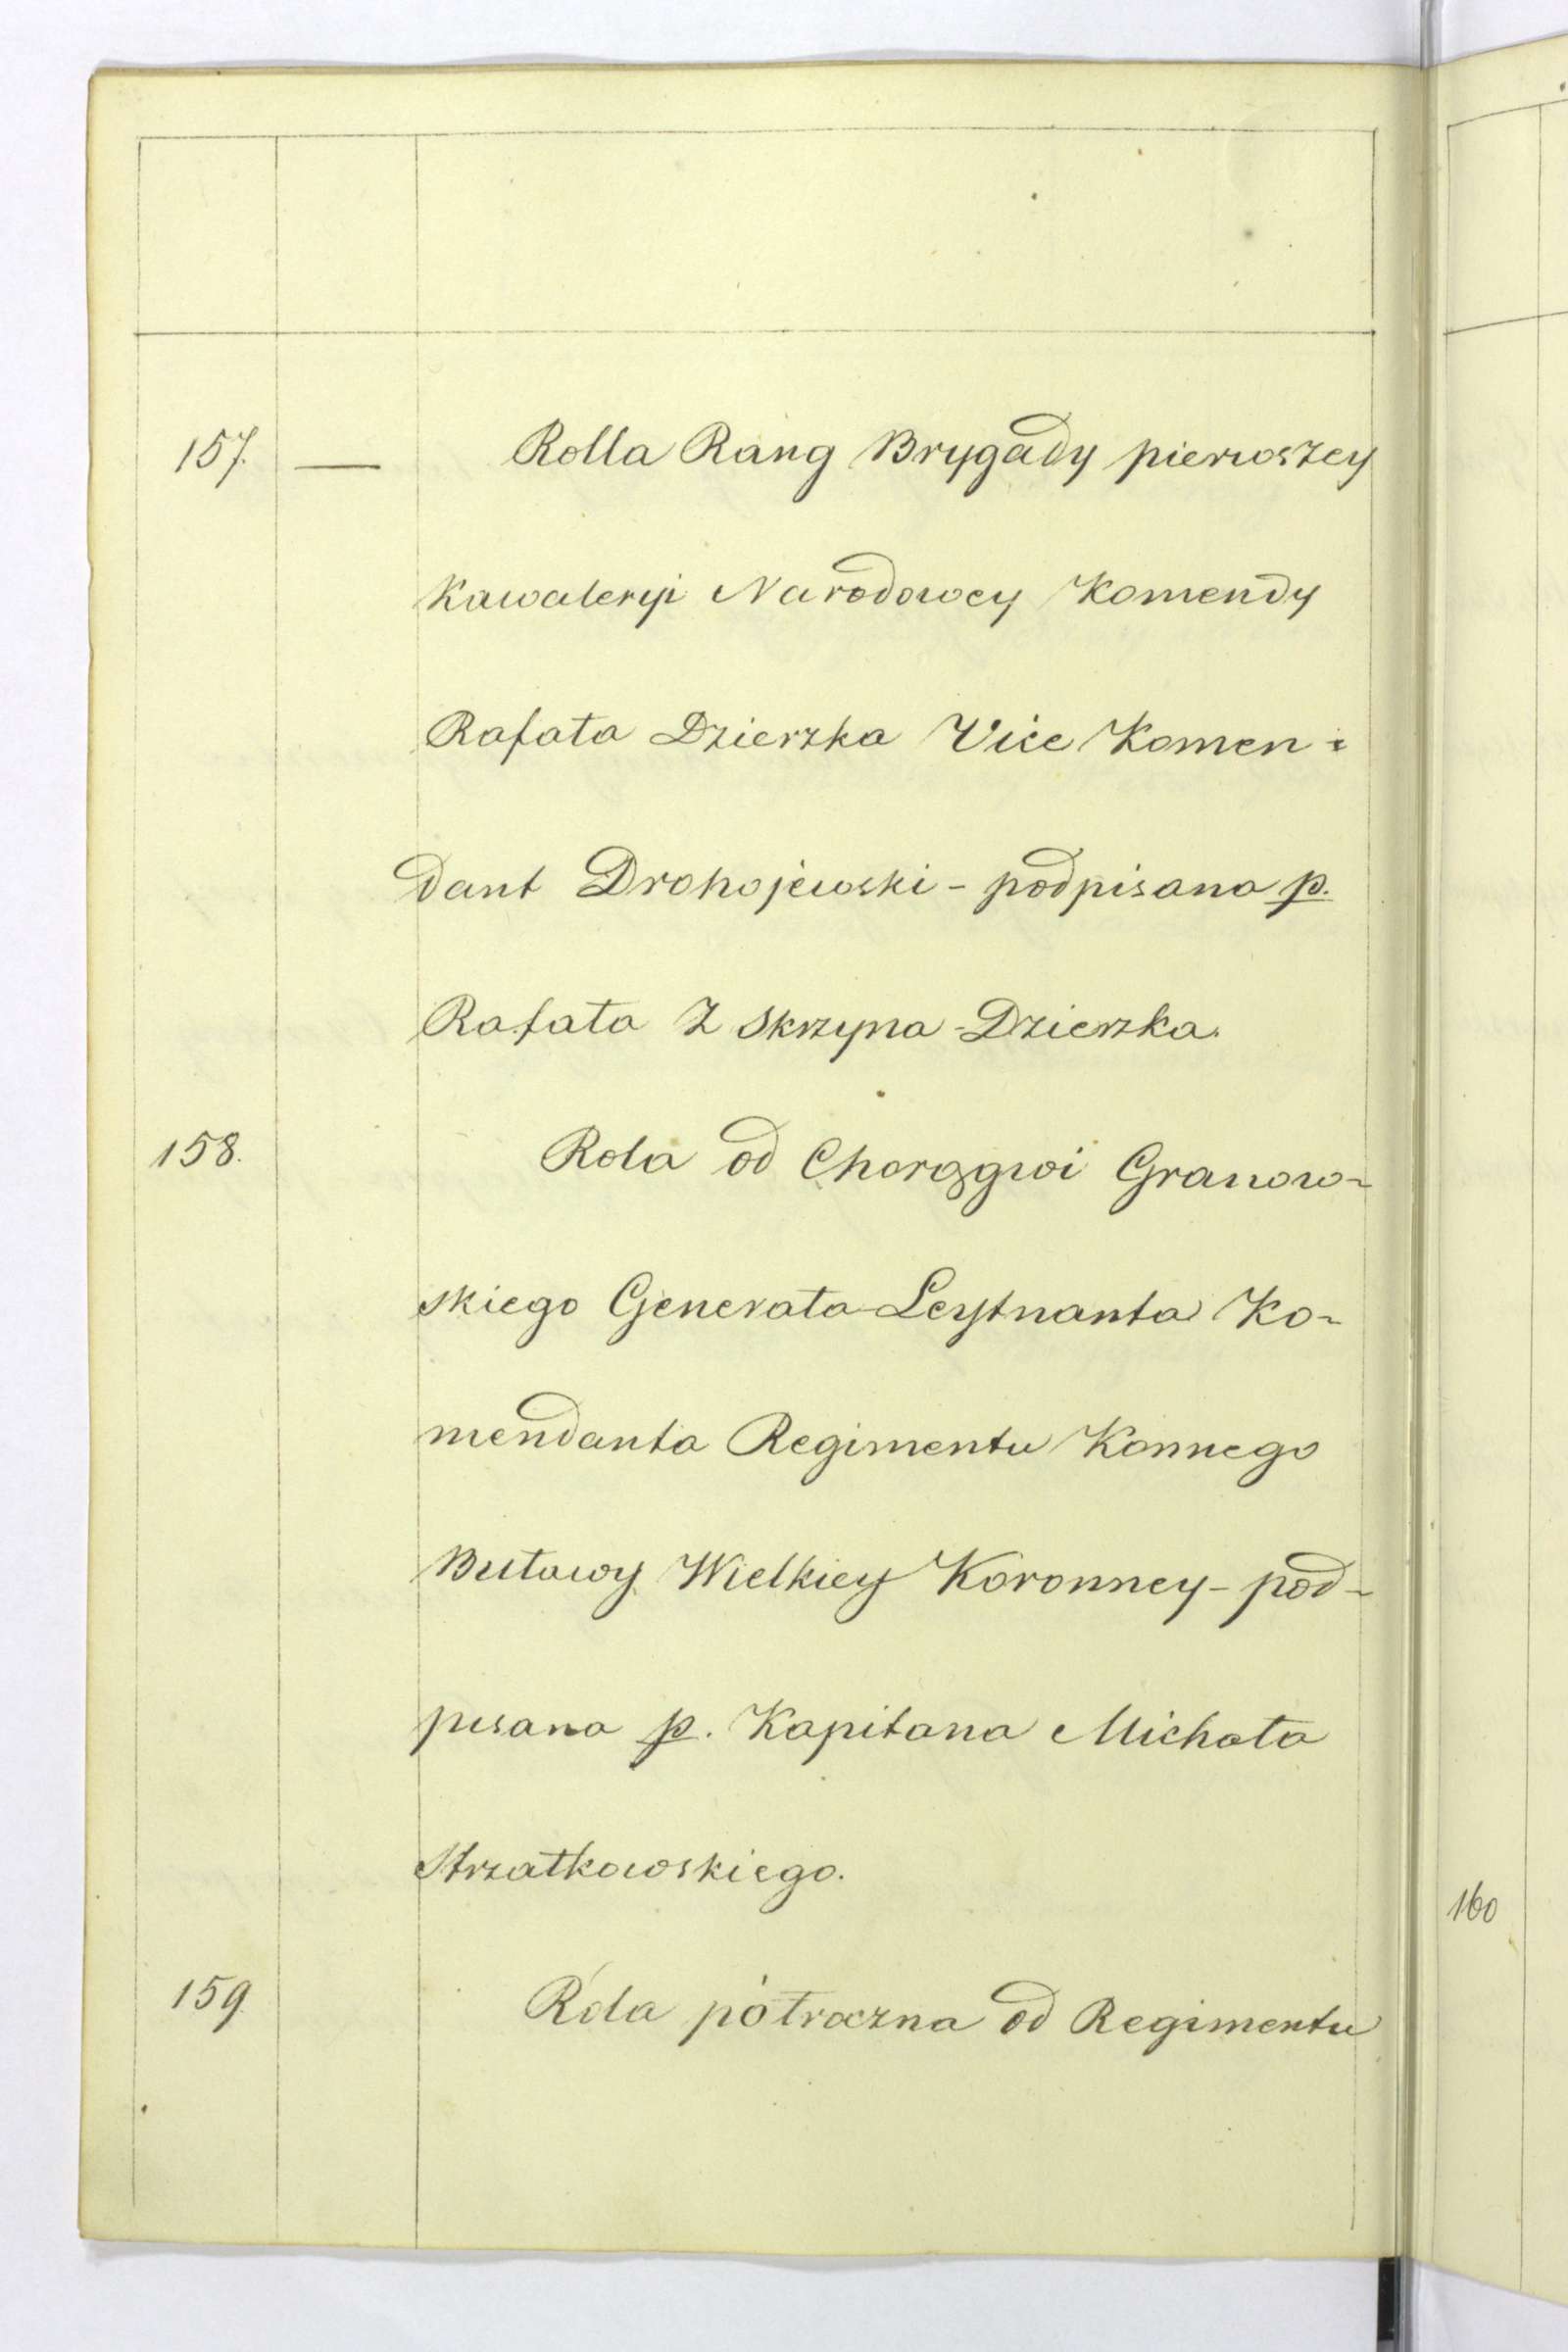 157. — Rolla Rang Brygady pierwszey
Kawaleryi Narodowey Komendy
Rafała Dzierzka Vice Komen-
dant Drohojewski - podpisana p.
Rafała z Skrzyna - Dzierzka.
158. Rola od Chorągwi Granow-
skiego Generała-Leytnanta Ko-
mendanta Regimentu Konnego
Buławy Wielkiey Koronney - pod-
pisana p. Kapitana Michała
Strzałkowskiego.
159. Róla półroczna od Regimentu
160